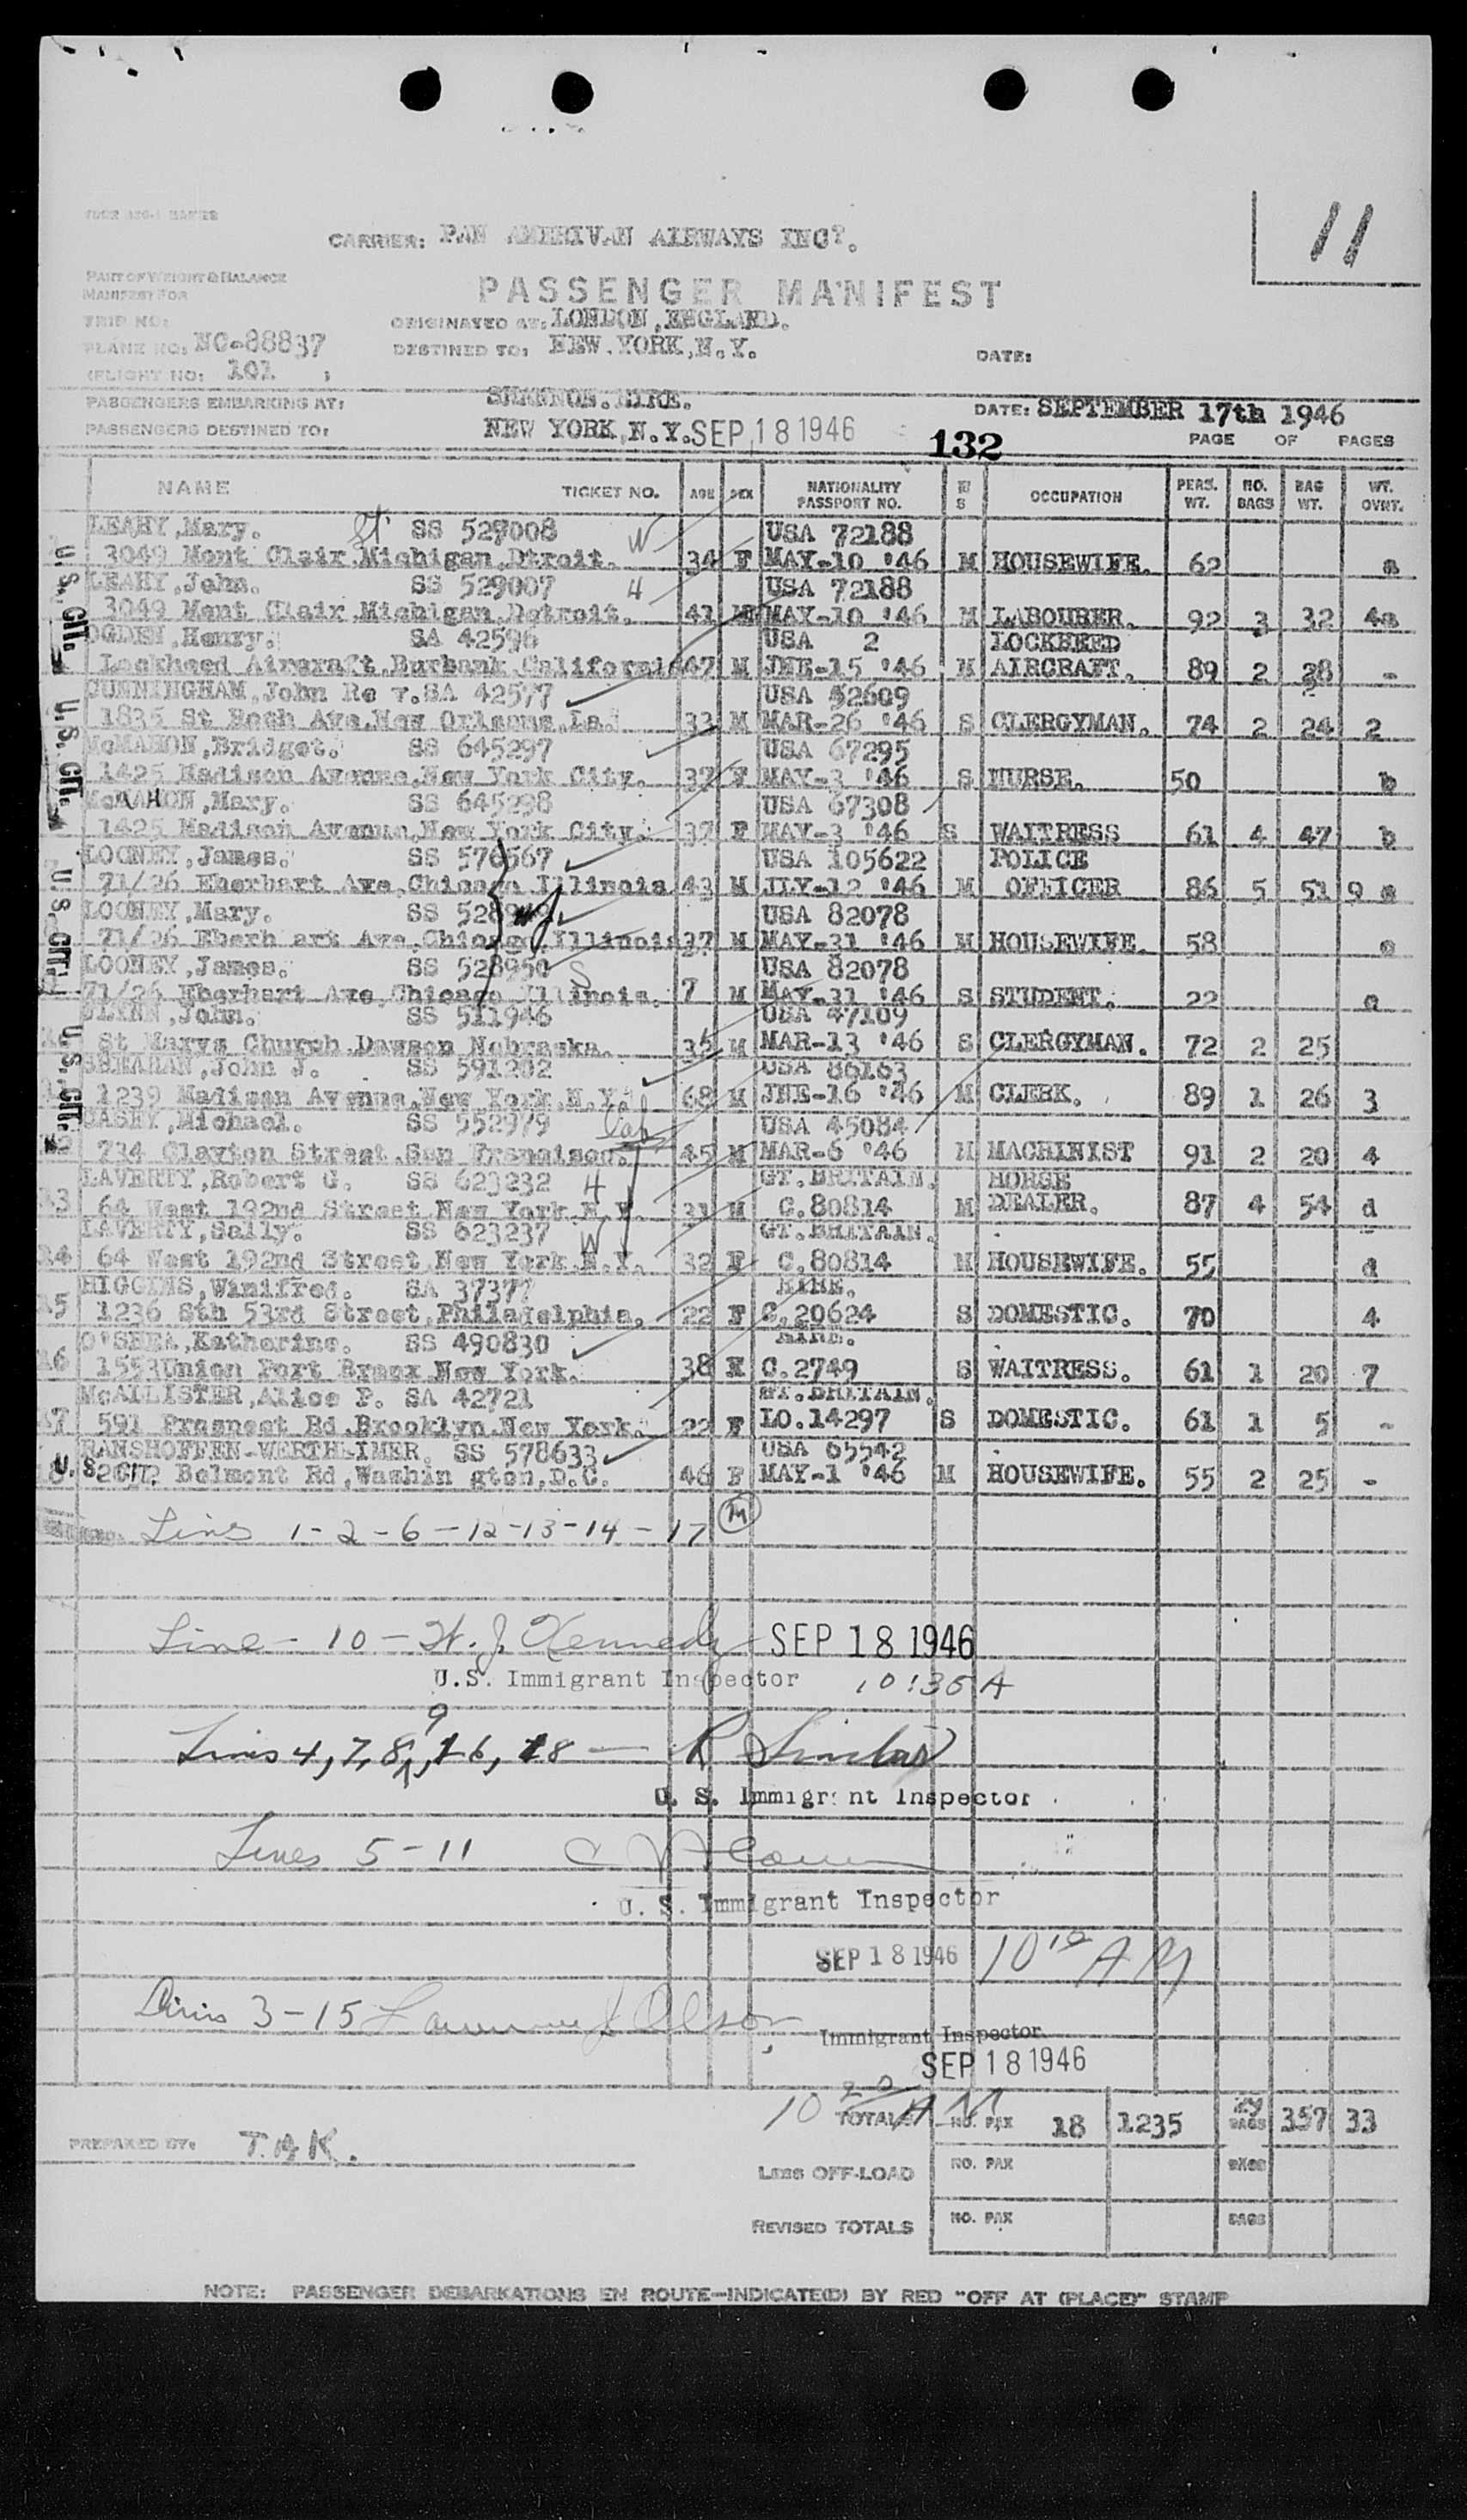 11
CARRIER: PAN AMERIVAN AIRWAYS INC?.
PART OF WEIGHT & BALANCE
MANIFEST FOR
PASSENGER MANIFEST
TRIP NO:
ORIGINATED AT: LONDON, ENGLAND.
PLANE NO: NC-88837
DESTINED TO: NEW.YORK,N.Y.
DATE:
(FLIGHT NO: 101 )
PASSENGERS EMBARKING AT: SHANNON.EIRE.
DATE: SEPTEMBER 17th 1946
PASSENGERS DESTINED TO: NEW YORK,N.Y. SEP 18 1946
132
PAGE OF PAGES
NAME TICKET NO. AGE SEX NATIONALITY PASSPORT NO. M S OCCUPATION PERS. WT. NO. BAGS BAG WT. WT. OVRT.
LEAHY,Mary. SS 529008 W USA 72188
3049 Mont Clair,Michigan,Dtroit. 34 F MAY-10 '46 M HOUSEWIFE. 62 a
LEAHY,John. SS 529007 4 USA 72188
3049 Mont Clair,Michigan,Detroit. 41 M MAY-10 '46 M LABOURER. 92 3 32 4a
OGDEN,Henry. SA 42596 USA 2 LOCKHEED
Lockheed Aircraft,Burbank,California 47 M JNE-15 '46 M AIRCRAFT. 89 2 28 -
CUNNINGHAM,John Re v.SA 42577 USA 52609
1835 St Roch Ave,New Orleans,La. 33 M MAR-26 '46 S CLERGYMAN. 74 2 24 2
McMAHON,Bridget. SS 645297 USA 67295
1425 Madison Avenue,New York City. 37 F MAY-3 '46 S NURSE. 50 b
McMAHON,Mary. SS 645298 USA 67308
1425 Madison Avenue,New York City. 37 F MAY-3 '46 S WAITRESS 61 4 47 b
LOONEY,James. SS 576567 USA 105622 POLICE
71/26 Eberhart Ave,Chicago,Illinois 43 M JLY-12 '46 M OFFICER 86 5 51 9 a
LOONEY,Mary. SS 528949 USA 82078
71/26 Eberh art Ave,Chicago,Illinois 37 M MAY-31 '46 M HOUSEWIFE. 58
LOONEY,James. SS 528950 S USA 82078
71/26 Eberhart Ave,Chicago Illinois. 7 M MAY-31 '46 S STUDENT. 22
,John. SS 511946 USA 47109
St Marys Church,Dawson Nebraska. M MAR-13 '46 S CLERGYMAN. 72 2 25
SHEAHAN,John J. SS 591202 USA 86163
1239 Madison Avenue,New York,N.Y. 68 M JNE-16 '46 M CLERK. 89 1 26 3
CASEY,Michael. SS 552979 USA 45084
734 Clayton Street,San Francisco. 45 M MAR-6 '46 M MACHINIST 91 2 20 4
LAVERTY,Robert G. SS 623232 H GT.BRITAIN. HORSE
64 West 192nd Street,New York,N.Y. 31 M C.80814 M DEALER. 87 4 54 d
LAVERTY,Sally. SS 623237 W GT.BRITAIN.
64 West 192nd Street,New York,N.Y. 32 F C.80814 M HOUSEWIFE. 55 d
HIGGINS,Winifred. SA 37377 EIRE.
1236 Sth 53rd Street,Philadelphia. 22 F C.20624 S DOMESTIC. 70 4
O'SHEA,Katherine. SS 490830 EIRE.
1553Union Port Bronx New York. 38 C.2749 S WAITRESS. 61 1 20 7
McALLISTER,Alice P. SA 42721 GT.BRITAIN.
591 Prospect Rd,Brooklyn,New York. 22 F LO.14297 S DOMESTIC. 61 1 5 -
RANSHOFFEN-WERTHEIMER. SS 578633 USA 65542
Belmont Rd,Washin gton,D.C. 46 F MAY-1 '46 M HOUSEWIFE. 55 2 25 -
U. S. CIT.
U. S. CIT.
U. S. CIT.
U. S. CIT.
U. S. CIT.
Lins 1-2-6-12-13-14-17 M
Line - 10 - W. J. Kennedy SEP 18 1946
U.S. Immigrant Inspector 10:35 A
9
Lins 4, 7, 8, 16, 18 — R Sinclair
U. S. Immigrant Inspector
Lines 5-11
U. S. Immigrant Inspector
SEP 18 1946 10 10 AM
3-15 Olson
Immigrant Inspector
SEP 18 1946
10 20 AM
TOTALS NO. PAX 18 1235 BAGS 357 33
PREPARED BY: T.A.K.
LESS OFF-LOAD NO. PAX BAGS
REVISED TOTALS NO. PAX BAGS
NOTE: PASSENGER DEBARKATIONS EN ROUTE—INDICATE(D) BY RED "OFF AT (PLACE)" STAMP